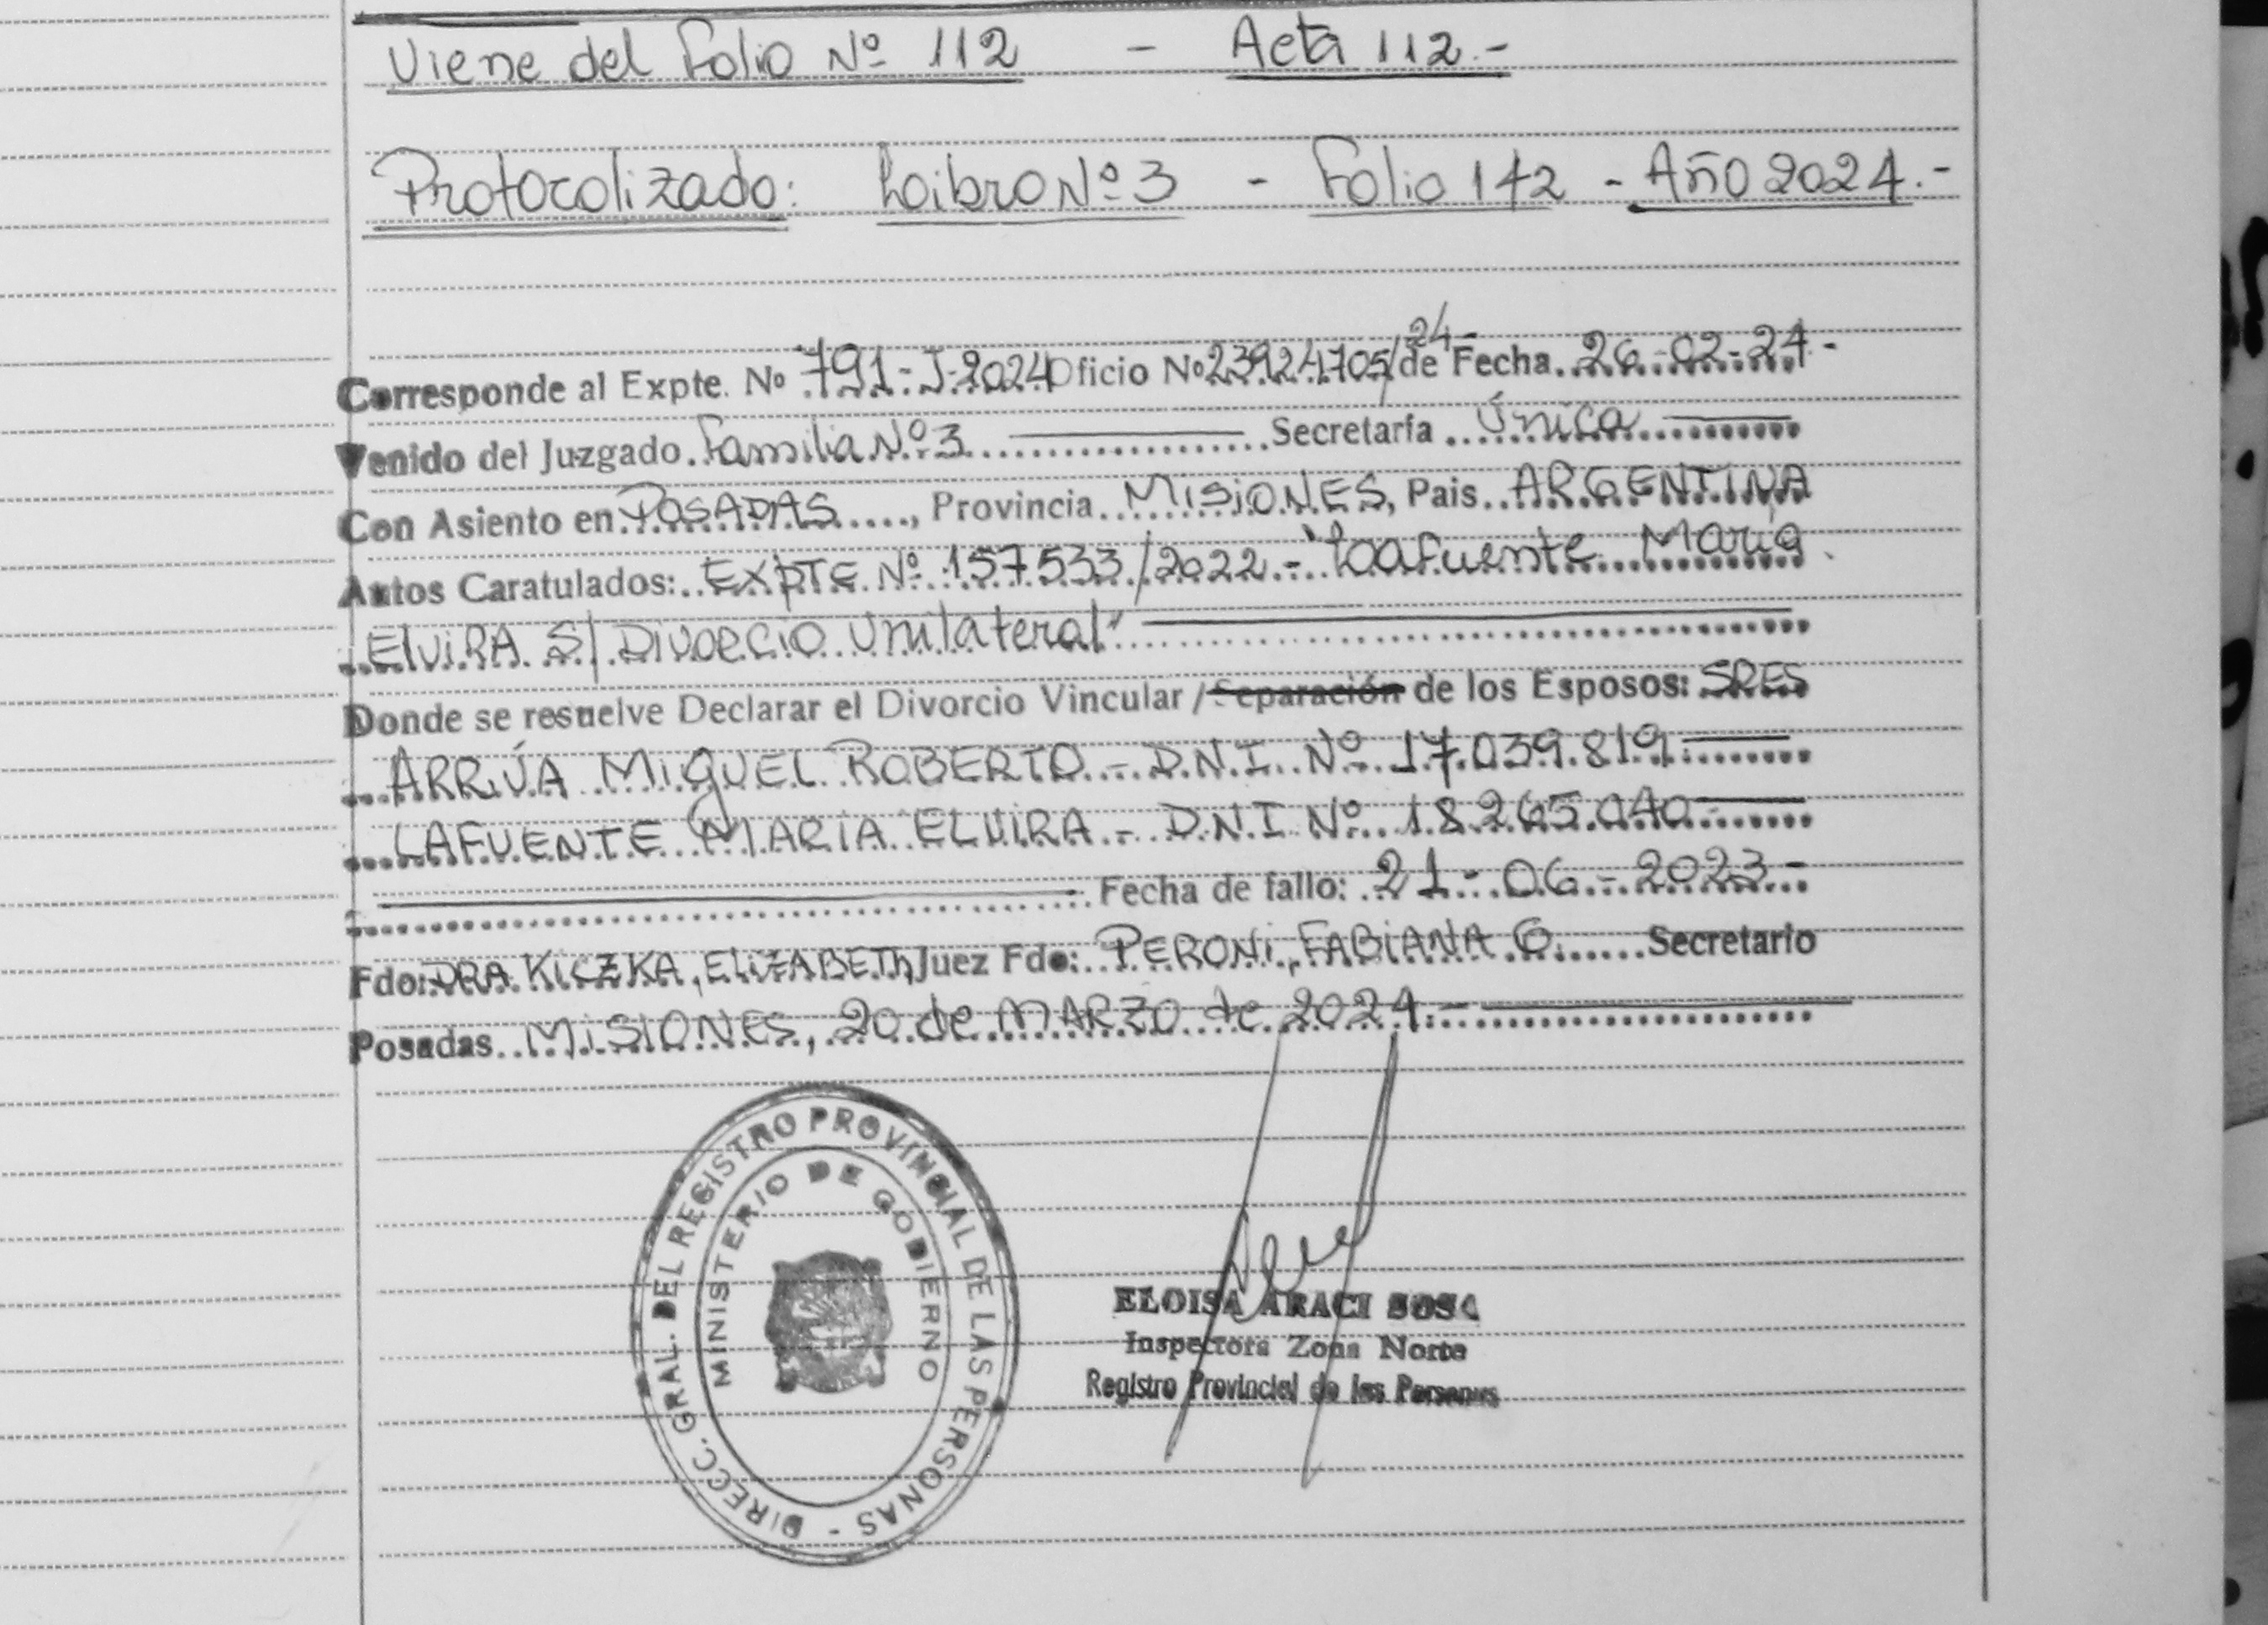 Viene del Folio Nº 112 - Acta 112.-
Protocolizado: Libro Nº 3 - Folio 142 - Año 2024.-
Corresponde al Expte. Nº 791-J-2024 Oficio Nº 23924705/24 de Fecha 26-02-24-
Venido del Juzgado Familia Nº 3 Secretaría Única
Con Asiento en POSADAS, Provincia MISIONES, Pais ARGENTINA
Autos Caratulados: EXPTE Nº 157533/2022.- "Lafuente María
ElviRA S/ Divorcio Unilateral"
Donde se resuelve Declarar el Divorcio Vincular / Separación de los Esposos: SRES
ARRÚA MIGUEL ROBERTO - D.N.I. Nº 17.039.819
LAFUENTE MARIA ELVIRA - D.N.I Nº 18.265.040
Fecha de fallo: 21-06-2023-
Fdo: DRA KICZKA, ELIZABETH Juez Fdo: PERONI, FABIANA G. Secretario
Posadas MISIONES, 20 de MARZO de 2024.-
DIRECC. GRAL. DEL REGISTRO PROVINCIAL DE LAS PERSONAS -
MINISTERIO DE GOBIERNO
ELOISA ARACI SOSA
Inspectora Zona Norte
Registro Provincial de las Personas